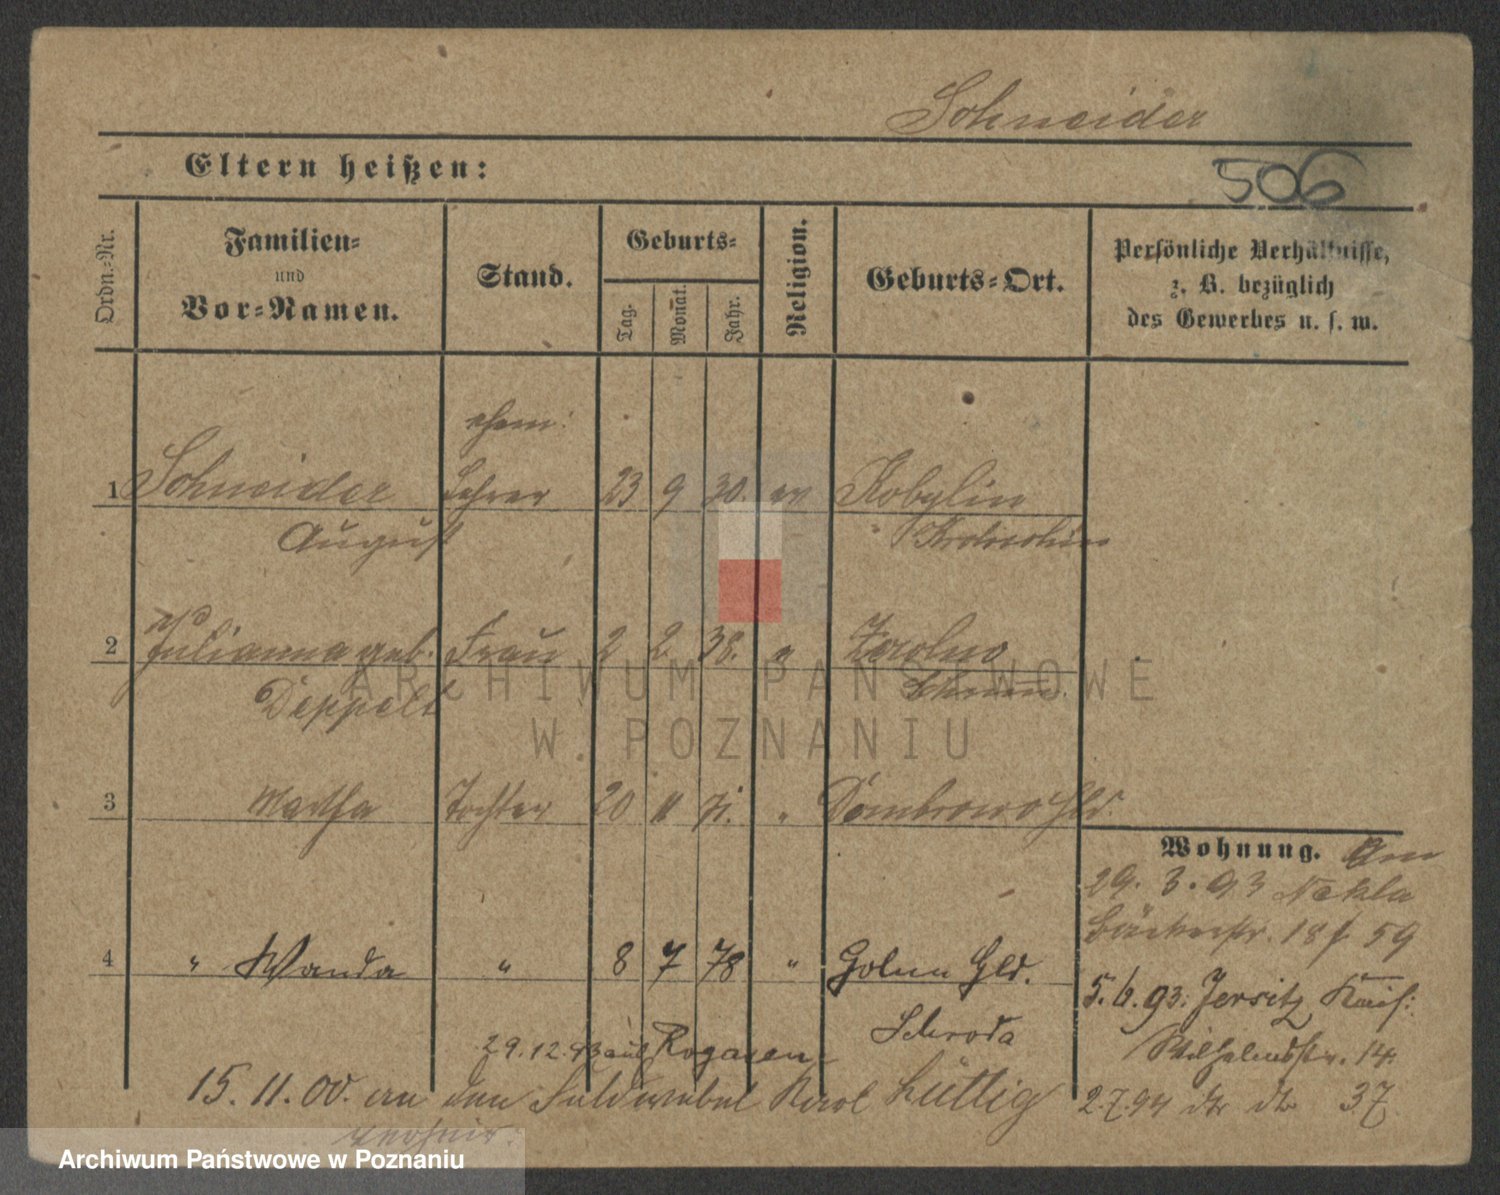 Schneider
Eltern heißen:
506
Ordn.-Nr.
Familien-
und
Vor-Namen.
Stand.
Geburts-
Tag.
Monat.
Jahr.
Religion.
Geburts-Ort.
Persönliche Verhältnisse,
z. B. bezüglich
des Gewerbes u. s. w.
ehem.
1 Schneider Lehrer 23 9 30. ev Kobylin
August Krotoschin
2 Julianna geb. Frau 2 2 38. "
Deppelt
3 Martha Tochter 20 11 71. " Dombrowo Gld.
Wohnung. Am
29. 3. 93 Nekla
Bäckerstr. 18 f 59
4 " Wanda " 8 7 78 " Golun Gld.
Schroda
5. 6. 93. Jersitz Kais:
Wilhelmstr. 14.
29.12.93 auch Rogasen
15. 11. 00. an den Feldwebel Karl Lüttig
2.7.94 dto dto 37
verheir.
ARCHIWUM PAŃSTWOWE
W POZNANIU
Archiwum Państwowe w Poznaniu